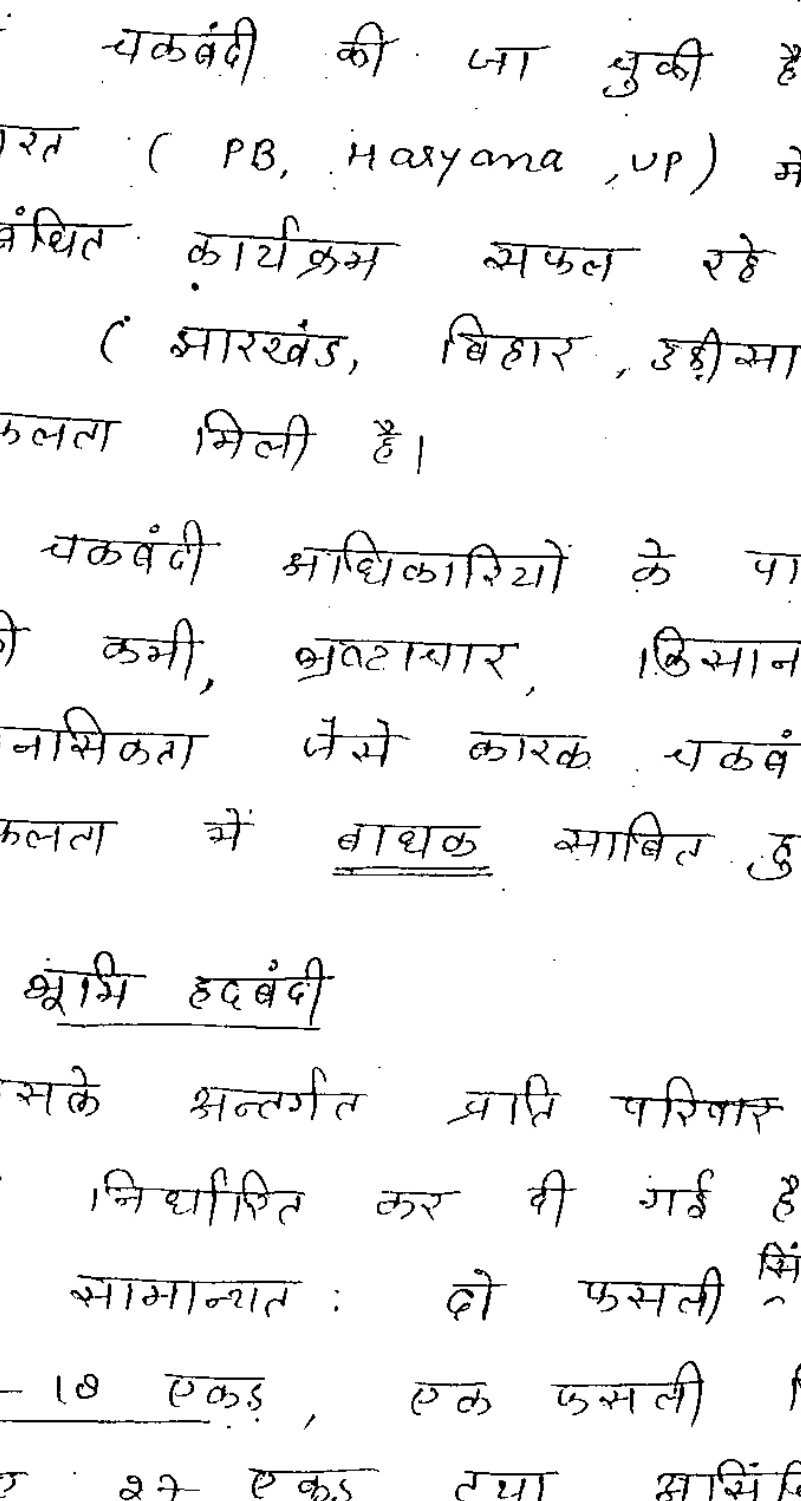 चकबंदी की जा चुकी है
ारत ( PB, Haryana, UP) में
बंधित कार्यक्रम सफल रहे
( झारखंड, बिहार, उड़ीसा
फलता मिली है।
चकबंदी अधिकारियों के पा
कमी, भ्रष्टाचार, किसान
नसिकता जैसे कारक चकबं
फलता में बाधक साबित हु
भूमि हदबंदी
सके अन्तर्गत प्रति परिवार
निर्धारित कर दी गई है
सामान्यत: दो फसली सिं
- 18 एकड़, एक फसली
27 एकड़ तथा असिंचि